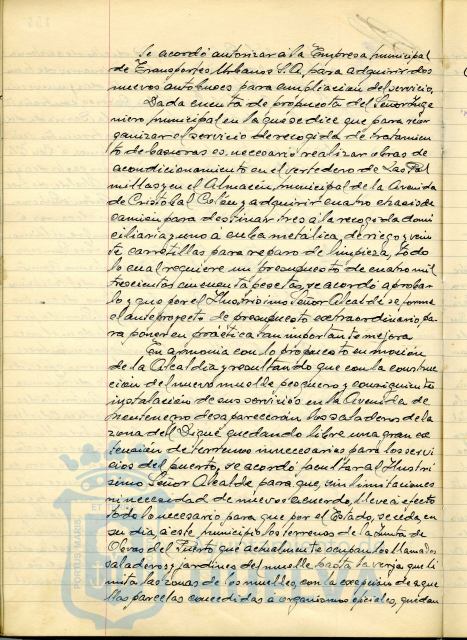 Se acordó autorizar a la Empresa municipal
de Transportes Urbanos S.A. para adquirir dos
nuevos autobuses para ampliación del servicio.
Dada cuenta de propuesta del Señor Inge
niero municipal en la que se dice que para reor
ganizar el servicio de recogida de tratamien
to de basuras es necesario realizar obras de
acondicionamiento en el vertedero de Las Pal
millas y en el Almacén municipal de la Avenida
de Cristobal Colón y adquirir cuatro chasis de
camión para destinar tres a la recogida domi
ciliaria y uno á cuba metálica de riego y vein
te carretillas para reparo de limpieza, todo
lo cual requiere un presupuesto de cuatro mil
trescientas cincuenta pesetas, se acordó aprobar
lo y que por el Ilustrísimo Señor Alcalde se forme
el anteproyecto de presupuesto extraordinario, pa
ra poner en práctica tan importante mejora.
En armonia con lo propuesto en moción
de la Alcaldía y resultando que con la construc
ción del nuevo muelle pesquero y consiguiente
instalación de sus servicios en la Avenida de
Montenegro desaparecerán los saladeros de la
zona del Dique quedando libre una gran ex
tensión de terrenos innecesarios para los servi
cios del puerto, se acordó facultar al Ilustrí
simo Señor Alcalde para que, sin limitaciones
ni necesidad de nuevos acuerdo, lleve á efecto
todo lo necesario para que por el Estado, se ceda, en
su día, a este municipio los terrenos de la Junta de
Obras del Puerto que actualmente ocupan los llamados
saladeros y jardines del muelle hasta la verja que li
mita las zonas de los muelles, con la excepción de aque
llas parcelas concedidas a organismos oficiales, quedan
PORTUS MARIS ET